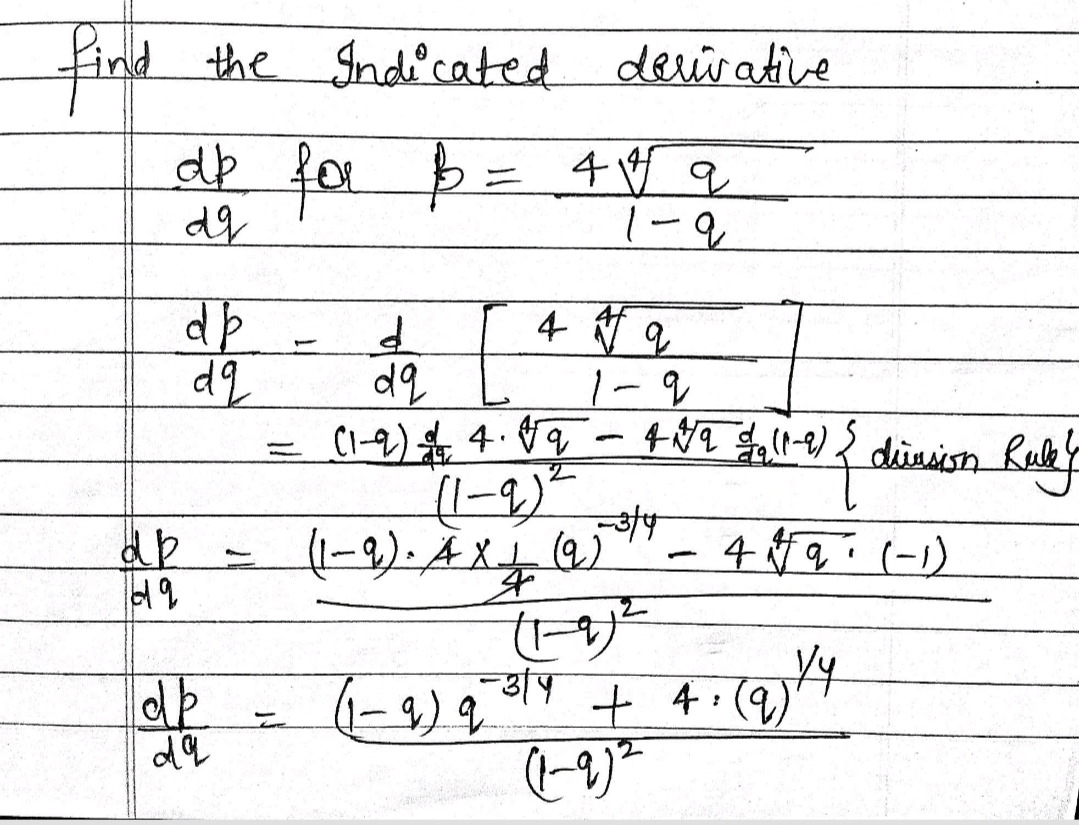 find the Indicated derivative
dp/dq for p = 4∜q / 1-q
dp/dq = d/dq [ 4 ∜q / 1-q ]
= (1-q) d/dq 4.∜q - 4∜q d/dq (1-q) / (1-q)² { division Rule }
dp/dq = (1-q). 4 x 1/4 (q)^-3/4 - 4 ∜q . (-1) / (1-q)²
dp/dq = (1-q) q^-3/4 + 4.(q)^1/4 / (1-q)²